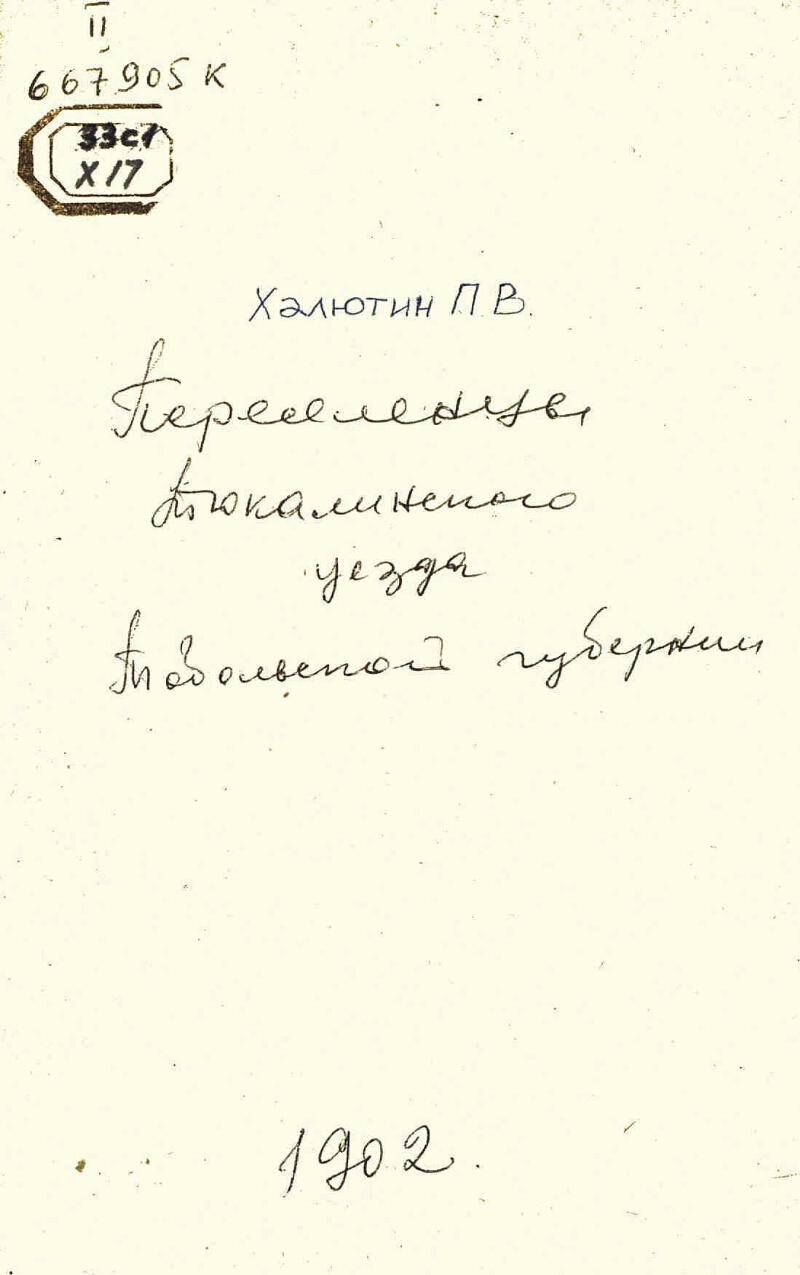 II
667905 К
33с1
Х17
Халютин П. В.
Переселенцы
Тюкалинского
уезда
Тобольской губернии
1902.